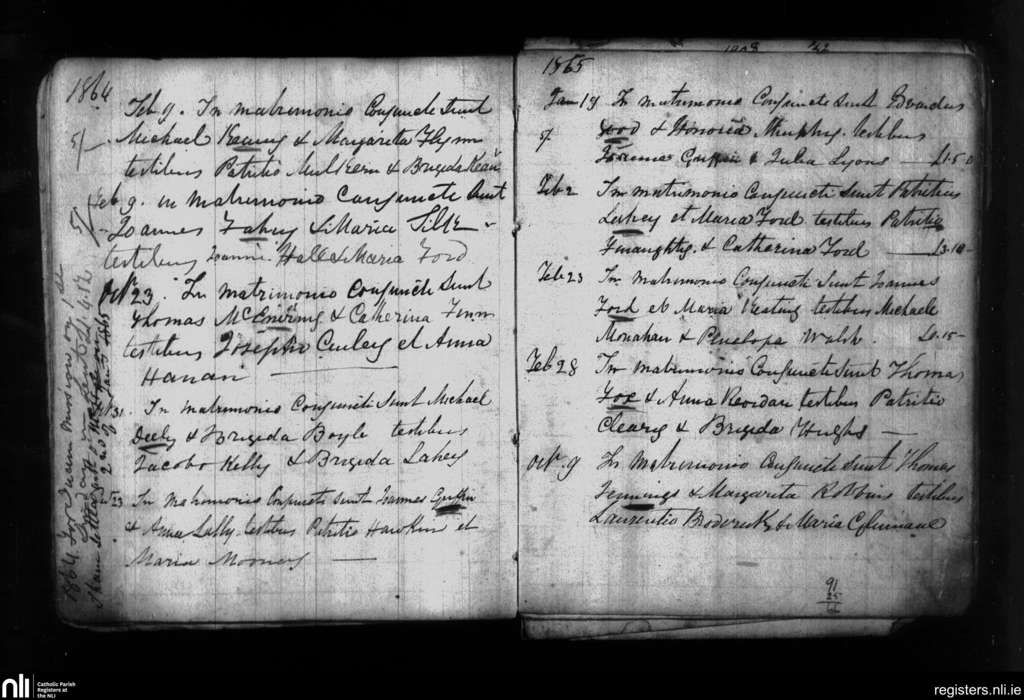 1864
Feb 9. In matrimonio Conjuncte Sunt
5/- Michael Keaney & Margarita Flynn
testibus Patritio Mulkern & Brigida Kean
Feb 9. in matrimonio Conjuncte Sunt
5/- Joannes Fahey & Maria Silk
testibus Joanne Hall & Maria Ford
Octr 23. In matrimonio Conjuncte Sunt
Thomas McEnirny & Catherina Finn
testibus Josepho Curley et Anna
Hanan
31. In matrimonio Conjuncti Sunt Michael
Deely & Brigida Boyle testibus
Jacobo Kelly & Brigida Lahey
23 In matrimonio Conjuncti Sunt Joannes Griffin
& Anna Lally testibus Patritio Hawkin et
Maria Mooney
1864
2nd of Jan 1865
1865
Jan 19 In matrimonio Conjuncte Sunt Edvardus
5/ & Honoria Murphy testibus
Griffin & Julia Lyons £1.5.0
Feb 2 In matrimonio Conjuncti Sunt Patritius
Lahey et Maria Ford testibus Patritio
Finaughty & Catherina Ford £3.10-
Feb 23 In matrimonio Conjuncti Sunt Joannes
Ford et Maria Keating testibus Michaele
Monahan & Penelopa Walsh. £0.15-
Feb 28 In matrimonio Conjuncti Sunt Thomas
Fox & Anna Reordan testibus Patritio
Cleary & Brigida Hughs
Octr. 9 In Matrimonio Conjuncti Sunt Thomas
Jennings & Margarita Robbins testibus
Laurentio Broderick & Maria
91
25
nli Catholic Parish
Registers at
the NLI
registers.nli.ie